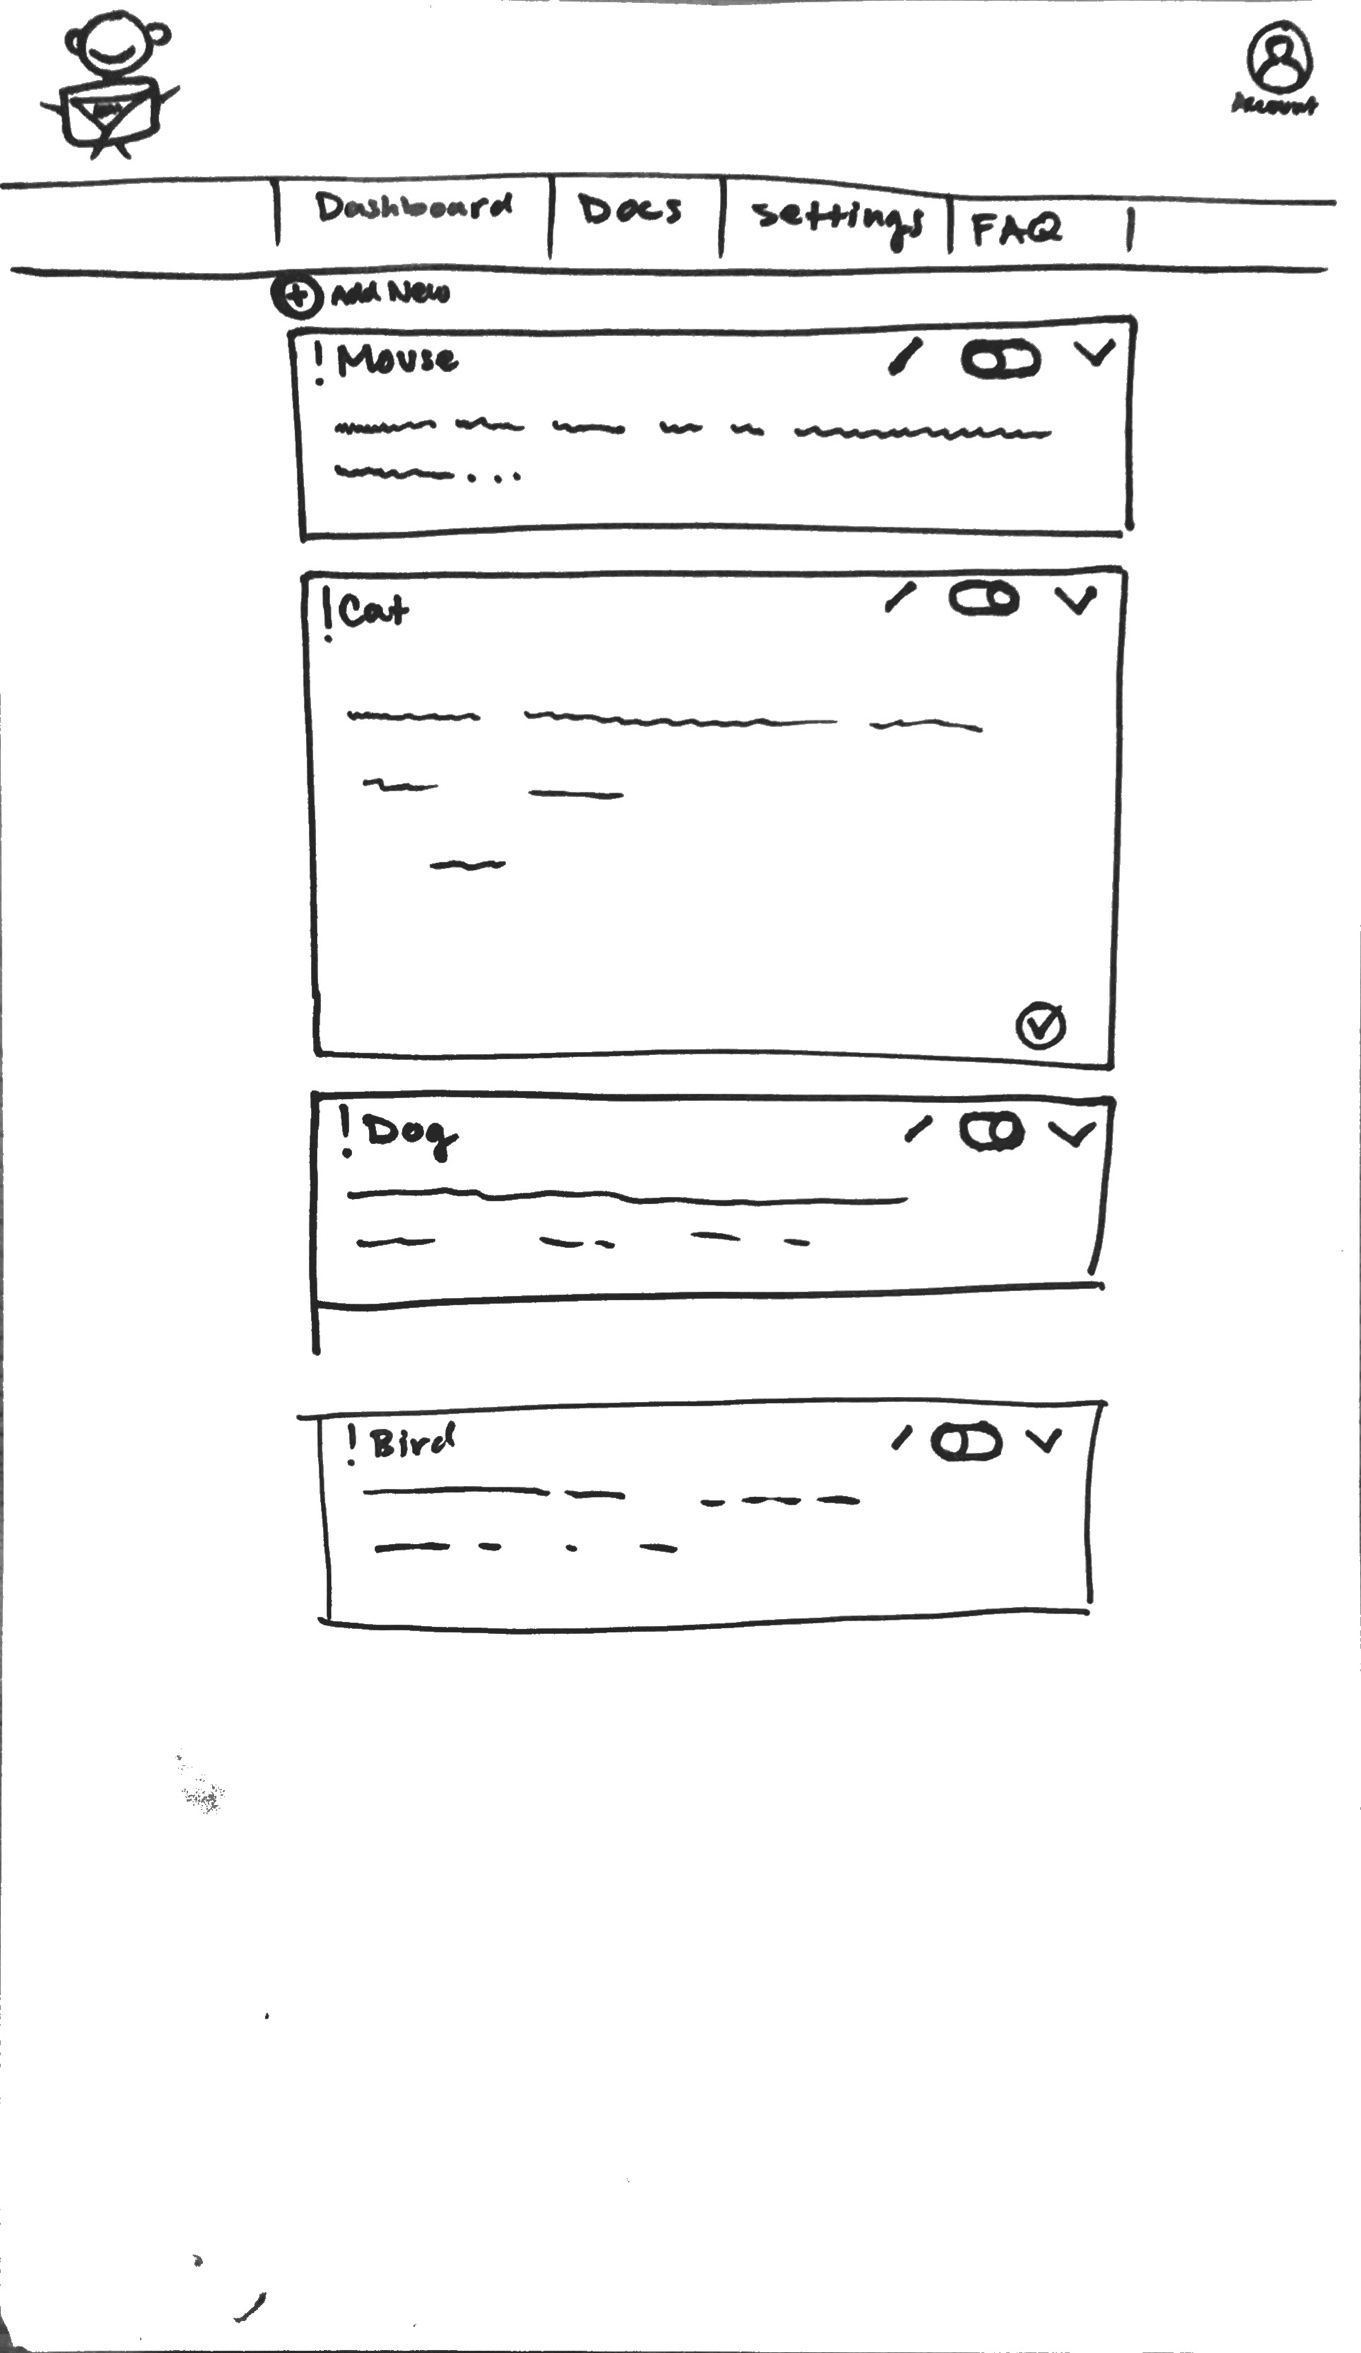 Account
Dashboard Docs settings FAQ
Add New
! Mouse
! Cat
! Dog
! Bird